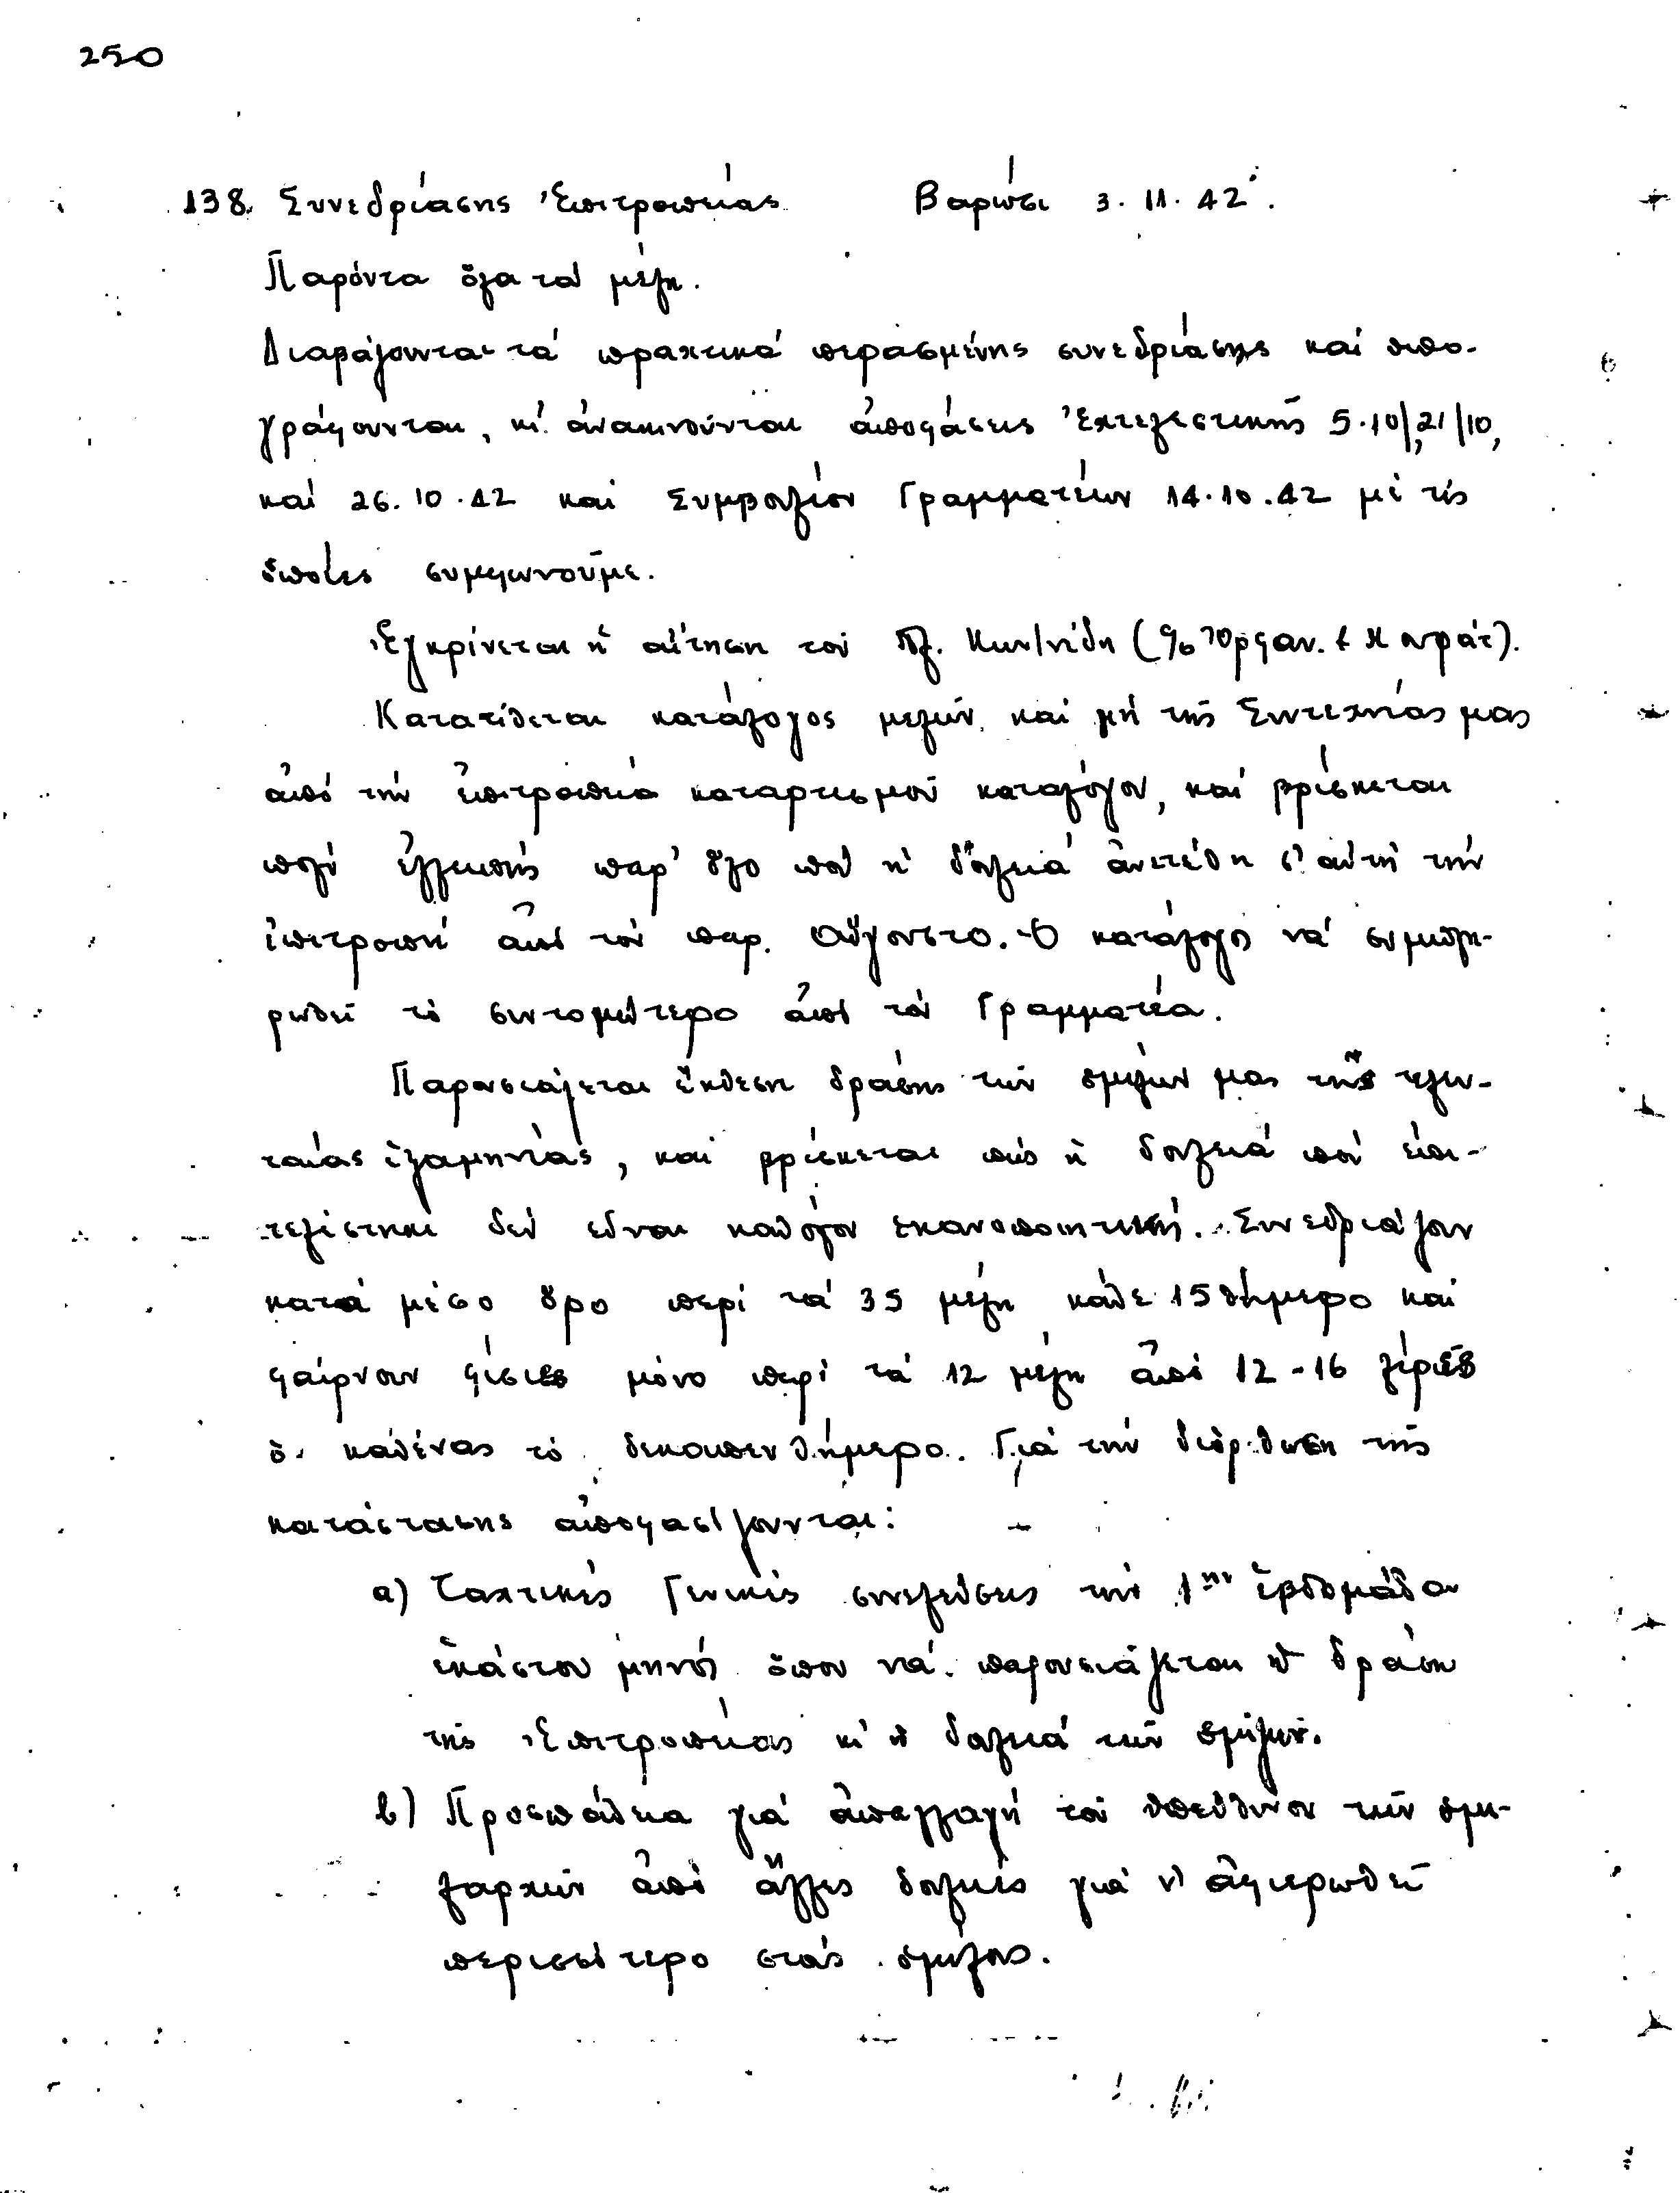 250
138. Συνεδρίασης Ἐπιτροπείας Βαρώσι 3.11.42.
Παρόντα ὅλα τὰ μέλη.
Διαβάζουνται τὰ πραχτικὰ περασμένης συνεδρίασης καὶ ὑπο-
γράφουνται, κι' ἀνακινοῦνται ἀποφάσεις Ἐχτελεστικῆς 5.10/, 21/10,
καὶ 26.10.42 καὶ Συμβουλίου Γραμματέων 14.10.42 μὲ τὶς
ὁποῖες συμφωνοῦμε.
Ἐγκρίνεται ἡ αἴτηση τοῦ Κων/νίδη
Κατατίθεται κατάλογος μελῶν καὶ μὴ τῆς Συντεχνίας μας
ἀπὸ τὴν ἐπιτροπεία καταρτισμοῦ καταλόγου, καὶ βρίσκεται
πολὺ ἐλλειπὴς παρ' ὅλο ποὺ ἡ δουλειὰ ἀνετέθη σ' αὐτὴ τὴν
ἐπιτροπὴ ἀπὸ τὸν περ. Αὔγουστο. Ὁ κατάλογος νὰ συμπλη-
ρωθεῖ τὸ συντομώτερο ἀπὸ τὸν Γραμματέα.
Παρουσιάζεται ἔκθεση δράσης τῶν ὁμίλων μας τῆς τελευ-
ταίας ἑξαμηνίας, καὶ βρίσκεται πὼς ἡ δουλειὰ ποὺ ἐπι-
τελέστηκε δὲν εἶναι καθόλου ἱκανοποιητική. Συνεδριάζουν
κατὰ μέσο ὅρο περὶ τὰ 35 μέλη κάθε 15θήμερο καὶ
φαίρνουν φίσιες μόνο περὶ τὰ 12 μέλη ἀπὸ 12-16 λίρες
ὁ καθένας τὸ δεκαπενθήμερο. Γιὰ τὴν διόρθωση τῆς
κατάστασης ἀποφασίζουνται:
α) Ταχτικὲς Γενικὲς συνελεύσεις τὴν 1ην ἑβδομάδα
ἑκάστου μηνὸς ὅπου νὰ παρουσιάζεται ἡ δράση
τῆς Ἐπιτροπείας κι' ἡ δουλειὰ τῶν ὁμίλων.
b) Προσπάθεια γιὰ ἀπαλλαγὴ τοῦ ὑπεύθυνου τῶν ὁμι-
λαρχῶν ἀπὸ ἄλλες δουλειὲς γιὰ ν' ἀφιερωθεῖ
περισσότερο στοὺς ὁμίλους.